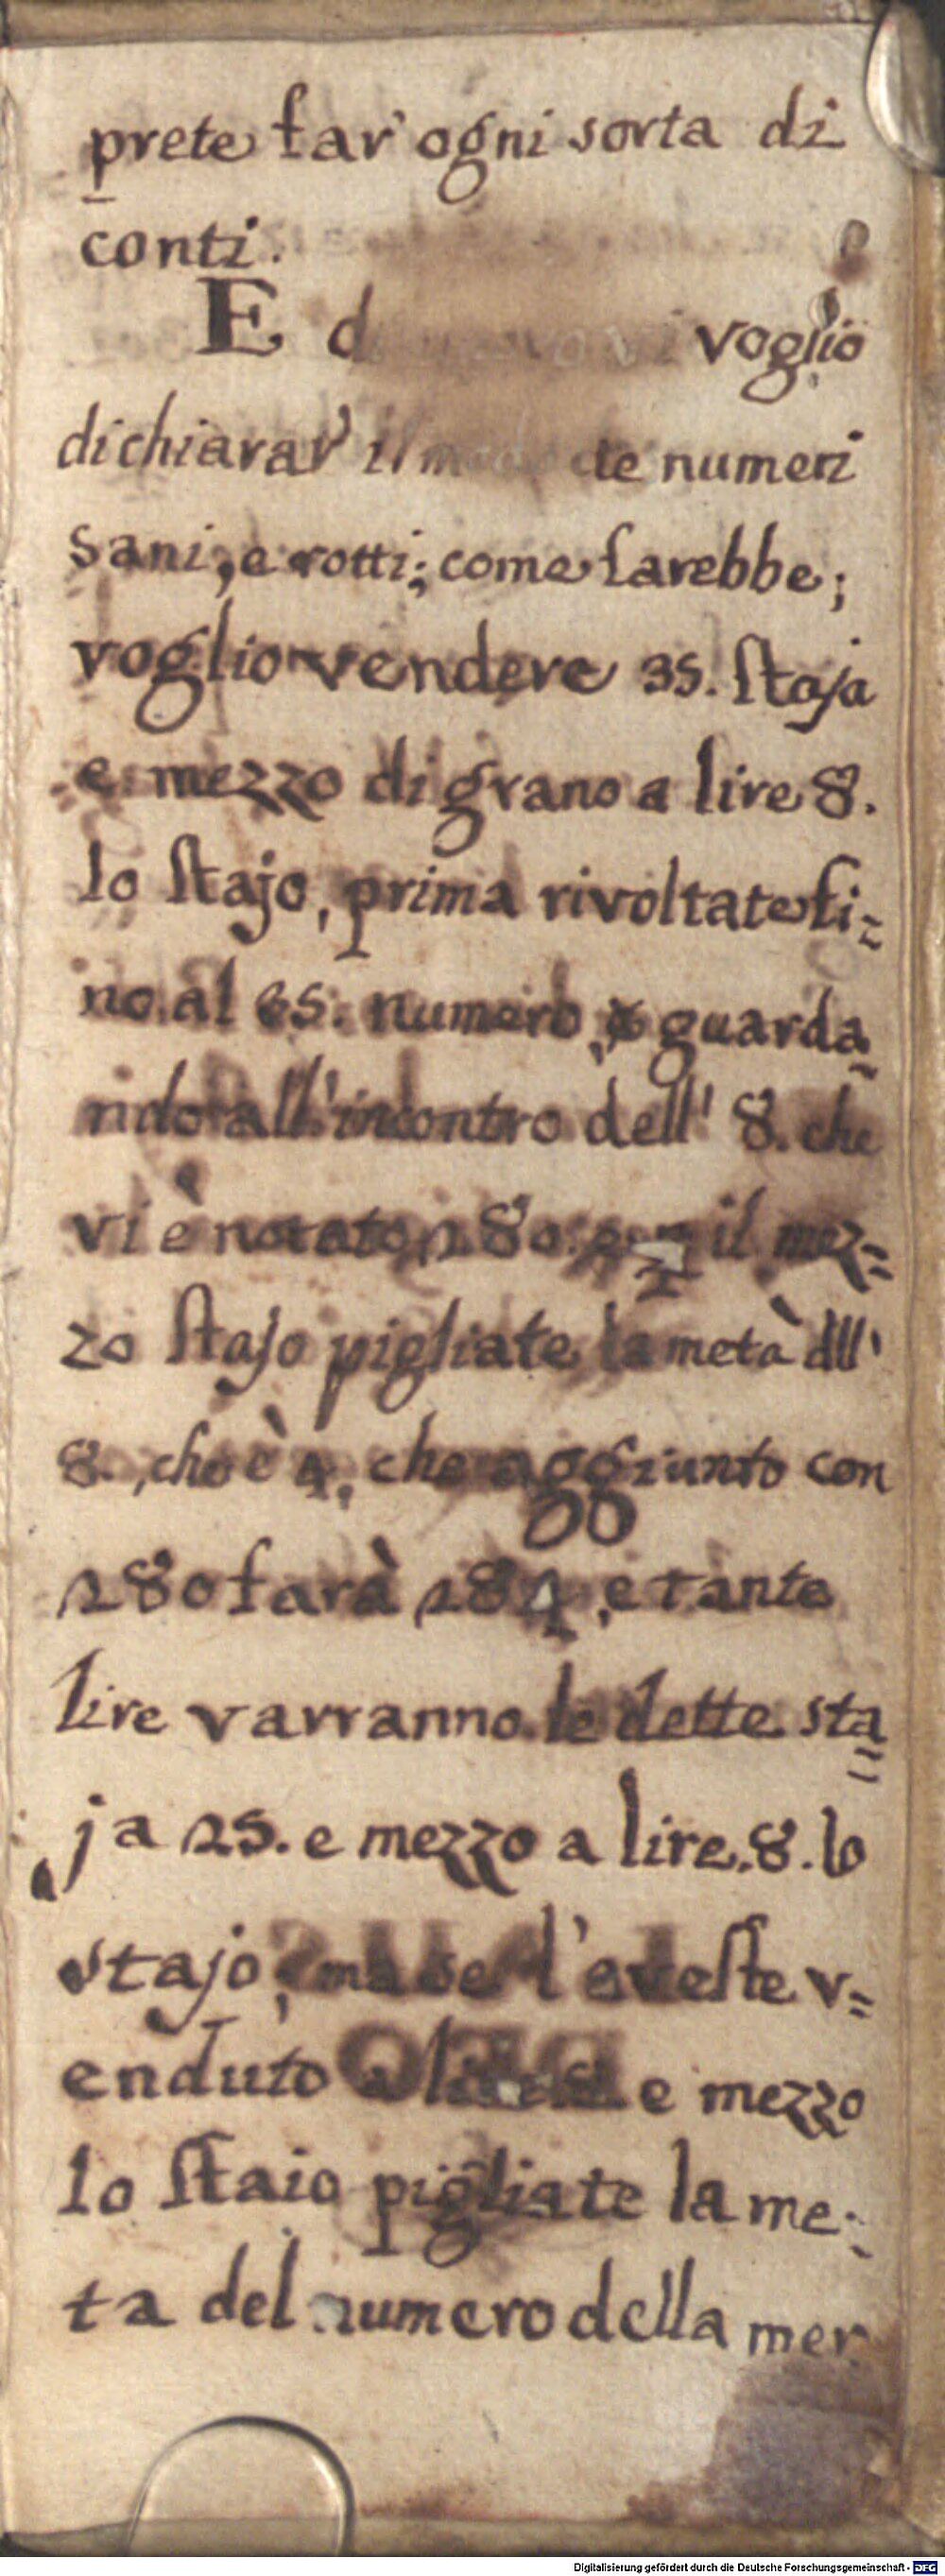 prete far' ogni sorta di
conti.
E d voglio
dichiarar' il modo de numeri
sani, e rotti; come sarebbe;
voglio vendere 35. staja
e mezzo di grano a lire 8.
lo stajo, prima rivoltate fi=
no al numero, e guarda
ndo all'incontro dell' 8. che
vi è notato, 280. il mez=
zo stajo pigliate la metà dll'
8. che è 4, che aggiunto con
280 farà 284, e tante
lire varranno le dette sta=
ja 25. e mezzo a lire. 8. lo
stajo; ma se l'aveste v=
enduto a e mezzo
lo staio pigliate la me-
ta del numero della mer
Digitalisierung gefördert durch die Deutsche Forschungsgemeinschaft - DFG